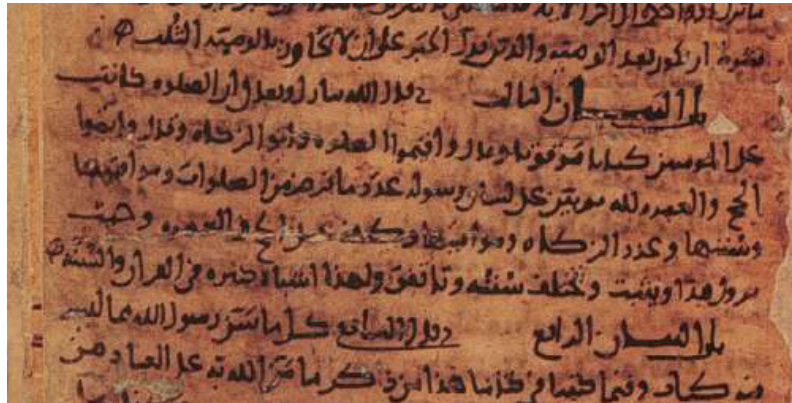 ان يكون بعد الوصيه والدين فدل الخبر على ان لا تجاوز بالوصيه الثلث
باب البيان الثالث قال الله تبارك وتعلى ان الصلوه كانت
على المومنين كتابا موقوتا وقال واقيموا الصلوه واتوا الزكاه وقال واتموا
الحج والعمره لله ثم بين على لسان رسوله عدد ما فرض من الصلوات ومواقيتها
وسننها وعدد الزكاه ومواقيتها وكيف عمل الحج والعمره وحيث
يزول هذا ويثبت وتختلف سننه وتاتفق ولهذا اشباه كثيره في القران والسنه
باب البيان الرابع قال الشافعي كل ما سن رسول الله مما ليس
فيه كتاب وفيما كتبنا في كتابنا هذا من ذكر ما من الله به على العباد من